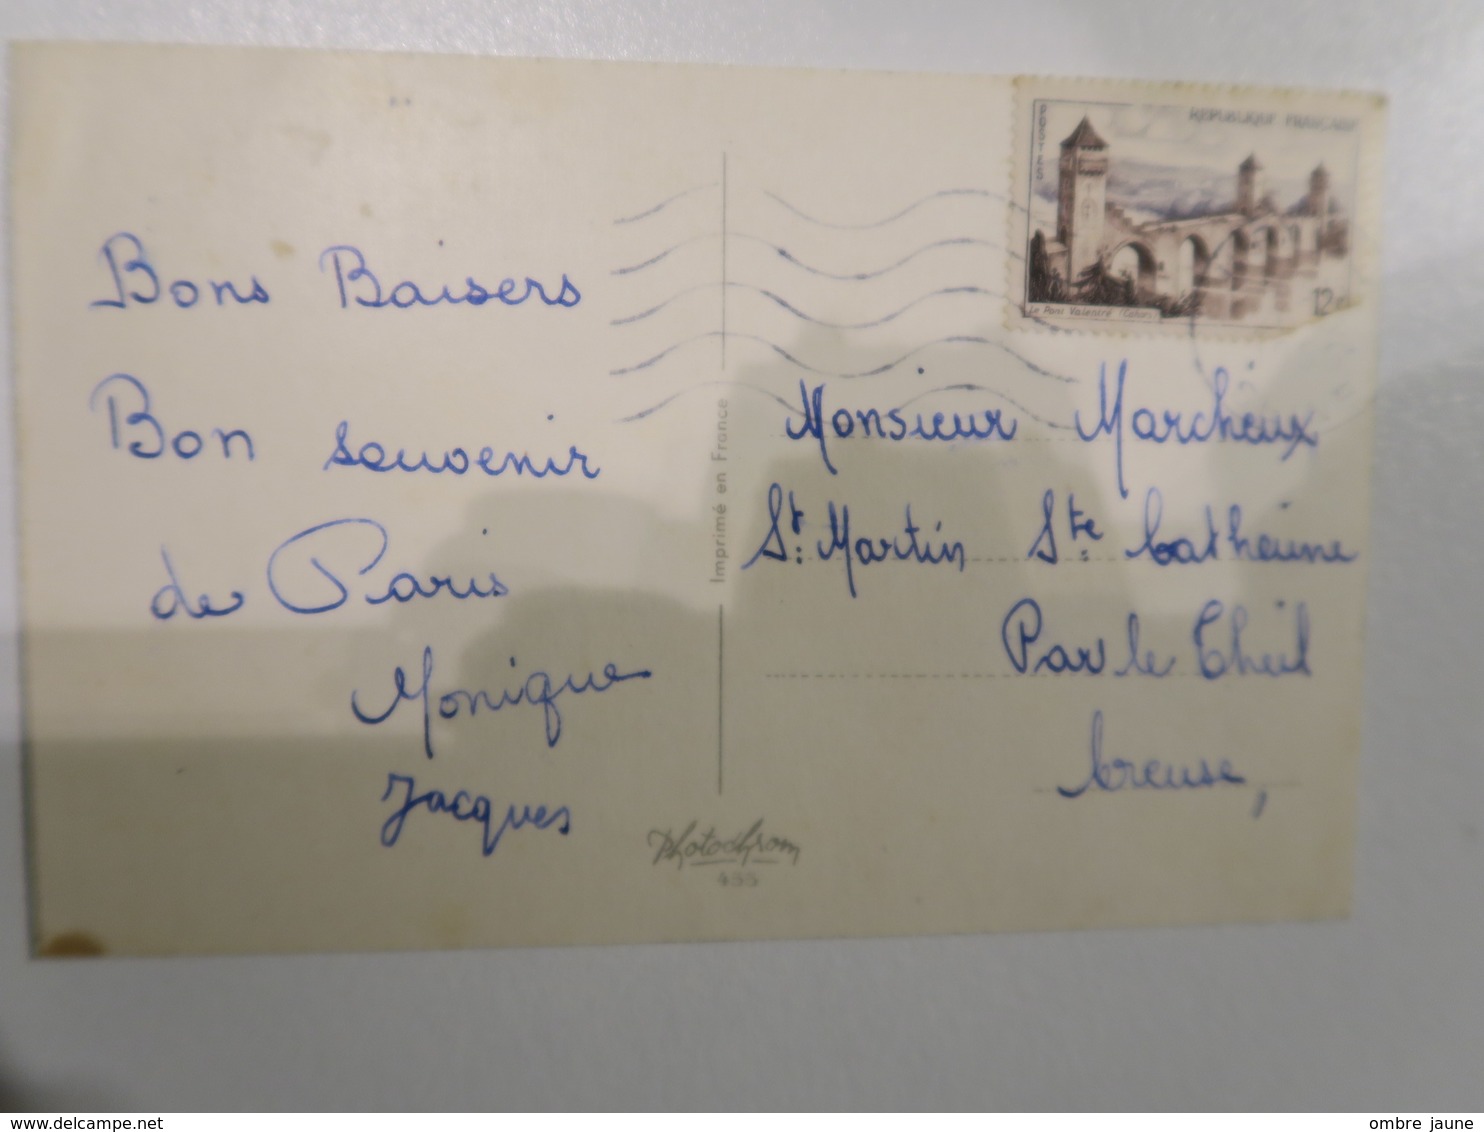 Bons Baisers
Bon souvenir
de Paris
Monique
Jacques
Imprimé en France
Photochrom
495
POSTES
REPUBLIQUE FRANÇAISE
12F
Le Pont Valentré (Cahors)
Monsieur Marcheux
St. Martin Ste. Catherine
Par le Theil
Creuse,
www.delcampe.net
ombre jaune